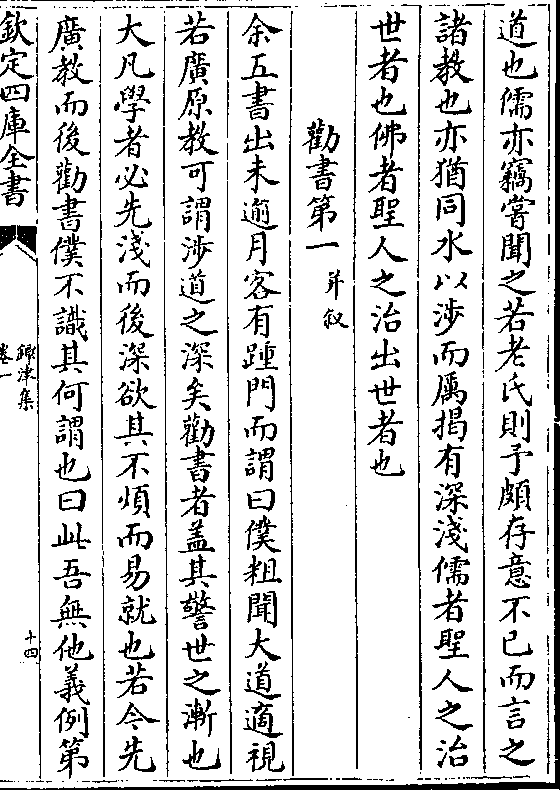 道也儒亦竊嘗聞之若老氏則予頗存意不已而言之
諸教也亦猶同水以渉而厲揭有深淺儒者聖人之治
世者也佛者聖人之治出世者也
勸書第一 并叙
余五書出未逾月客有踵門而謂曰僕粗聞大道適視
若廣原教可謂渉道之深矣勸書者盖其警世之漸也
大凡學者必先淺而後深欲其不煩而易就也若今先
廣教而後勸書僕不識其何謂也曰此吾無他義例第
欽定四庫全書
鐔津集
卷一
十四